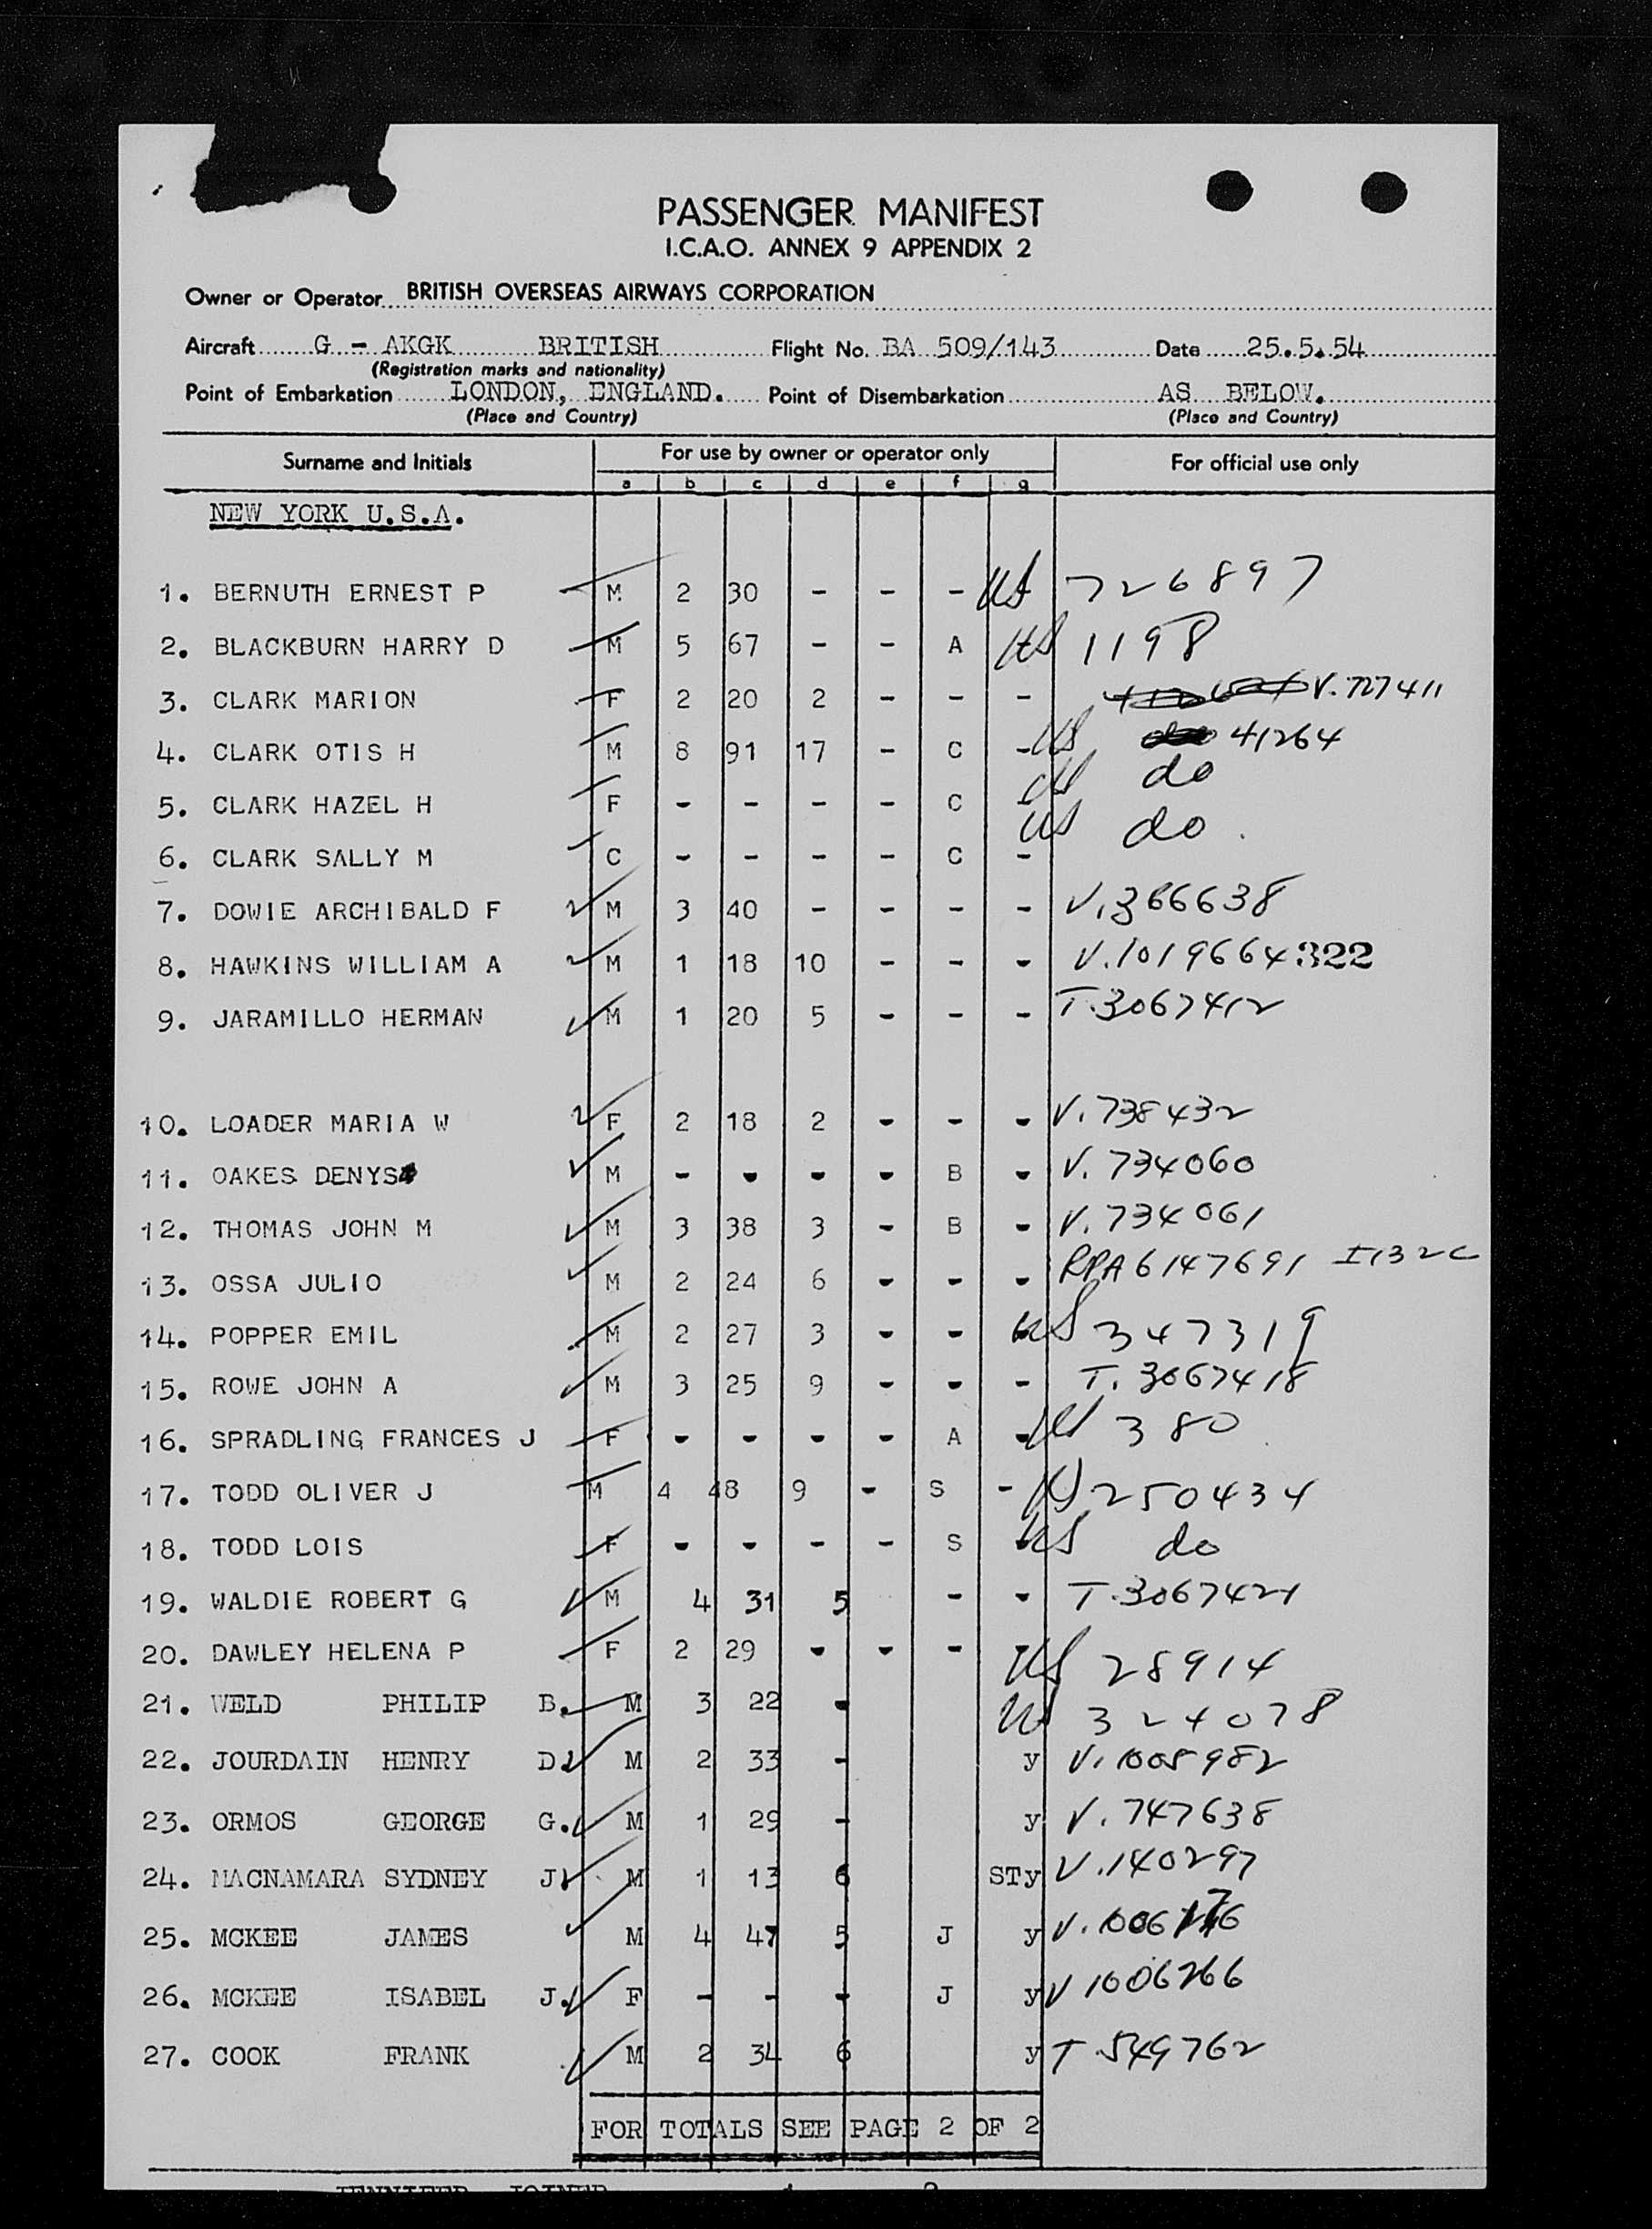 PASSENGER MANIFEST
I.C.A.O. ANNEX 9 APPENDIX 2
Owner or Operator BRITISH OVERSEAS AIRWAYS CORPORATION
Aircraft G - AKGK BRITISH Flight No. BA 509/143 Date 25.5.54
(Registration marks and nationality)
Point of Embarkation LONDON, ENGLAND. Point of Disembarkation AS BELOW.
(Place and Country) (Place and Country)
Surname and Initials For use by owner or operator only For official use only
a b c d e f g
NEW YORK U.S.A.
1. BERNUTH ERNEST P M 2 30 - - - US 726897
2. BLACKBURN HARRY D M 5 67 - - A US 1198
3. CLARK MARION F 2 20 2 - - - V. 727411
4. CLARK OTIS H M 8 91 17 - C - US 41264
5. CLARK HAZEL H F - - - - C - US do
6. CLARK SALLY M C - - - - C - US do.
7. DOWIE ARCHIBALD F M 3 40 - - - - V.366638
8. HAWKINS WILLIAM A M 1 18 10 - - - V.1019664 322
9. JARAMILLO HERMAN M 1 20 5 - - - T.3067412
10. LOADER MARIA W F 2 18 2 - - - V.738432
11. OAKES DENYS M - - - - B - V. 734060
12. THOMAS JOHN M M 3 38 3 - B - V. 734061
13. OSSA JULIO M 2 24 6 - - - RPA6147691 I132C
14. POPPER EMIL M 2 27 3 - - - US 347319
15. ROWE JOHN A M 3 25 9 - - - T. 3067418
16. SPRADLING FRANCES J F - - - - A - US 380
17. TODD OLIVER J M 4 48 9 - S - US 250434
18. TODD LOIS F - - - - S - US do
19. WALDIE ROBERT G M 4 31 5 - - T.3067421
20. DAWLEY HELENA P F 2 29 - - - - US 28914
21. WELD PHILIP B. M 3 22 - US 324078
22. JOURDAIN HENRY D. M 2 33 - y V.1008982
23. ORMOS GEORGE G. M 1 29 - y V. 747638
24. MACNAMARA SYDNEY J. M 1 13 6 STy V.140297
25. MCKEE JAMES M 4 47 5 J y
26. MCKEE ISABEL J. F - - - J y V 1006266
27. COOK FRANK M 2 34 6 y T.549762
FOR TOTALS SEE PAGE 2 OF 2